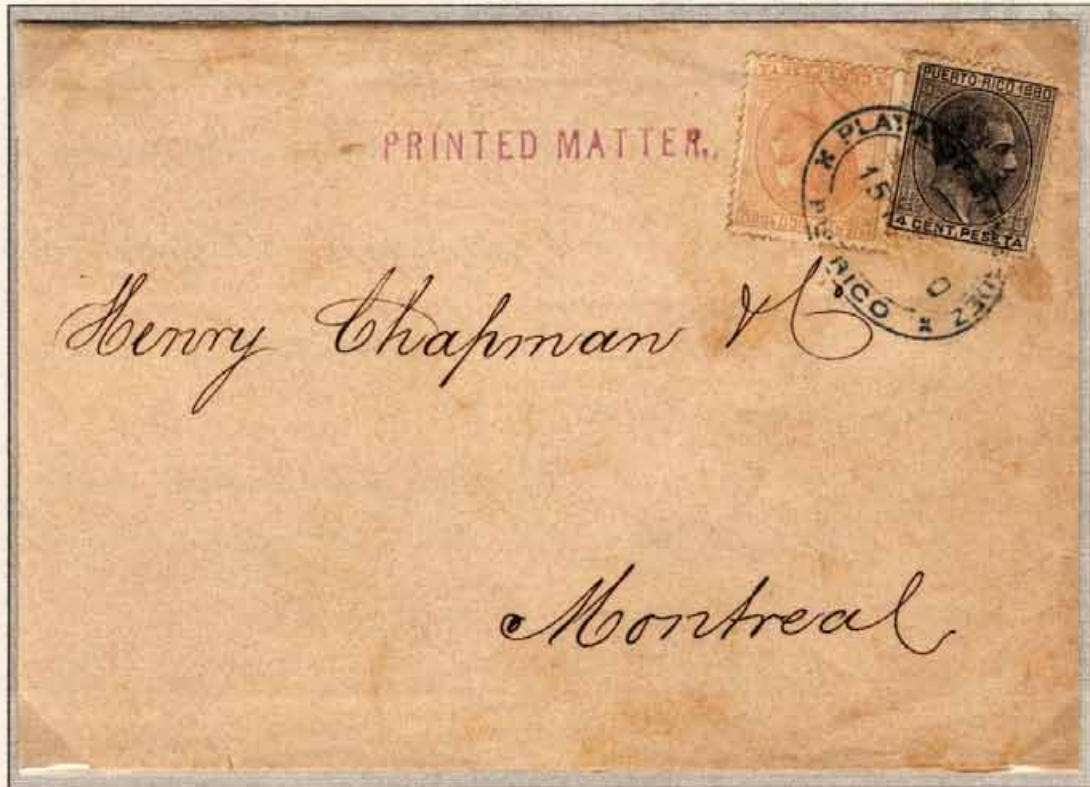 PRINTED MATTER.
PUERTO-RICO 1880
4 CENT. PESETA
PLAYA
15
RICO
Henry Chapman & C
Montreal